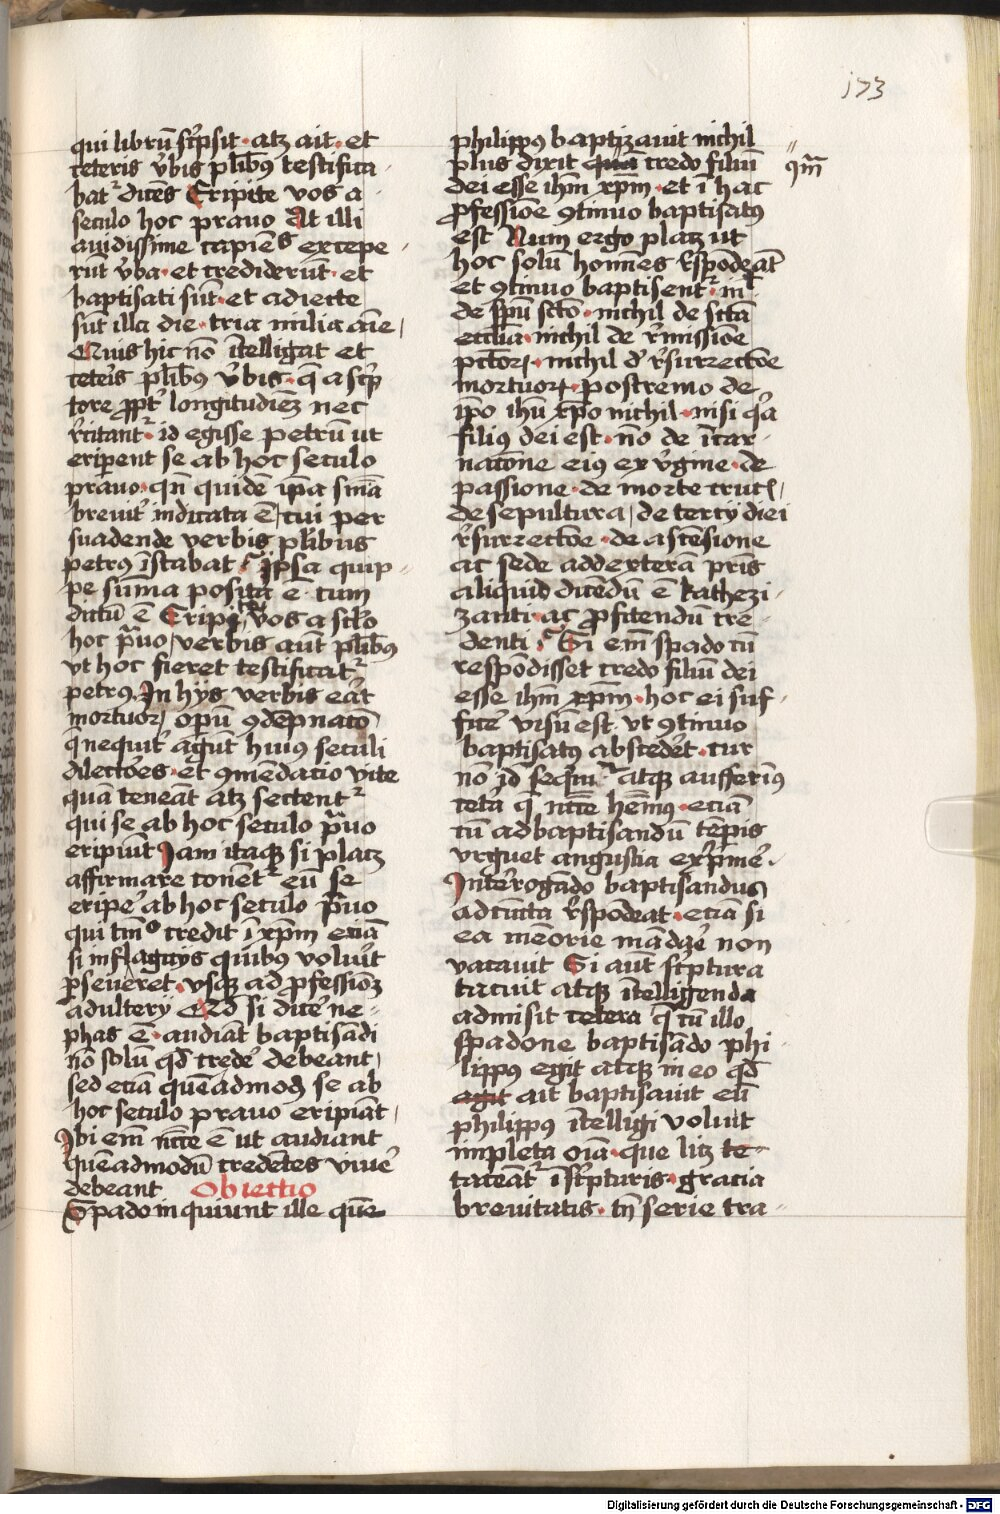 173
qui librū sc̄psit · atꝫ ait · et
ceteris v̓bis pl̄ibꝰ testifica
bat᷑ dicēs Eripite vos a ·
seculo hoc prauo At illi
auidissime capiēs excepe ·
rūt v̓ba · et crediderūt · et
baptisati sūt · et adiecte
sūt illa die · tria milia aīe /
Quis hic nō ītelligat et
ceter̄s pl̄ibꝰ v̓bis · q̄ a sc̄p
tore ꝓpt̓ longitudiēꝫ nec
r̓citant᷑ · id egisse petrū ut
eriperent se ab hoc seculo
prauo · qn̄ quidē ip̄a sn̄ia
breuit̓ indicata ē / cui per
suadende verbis pl̄ibus
petrꝰ īstabat · Ipsa quip ·
pe sūma posita ē · cum
dictū ē Eripite vos a sc̄lo
hoc p̄uo / verbis aūt pl̄ibꝰ
vt hoc fieret testificat᷑
petrꝰ · In hijs verbis erāt
mortuoꝝ opū ꝯdēpnatō
q̄ nequit̓ agūt huiꝰ seculi
dilectōes · et ꝯmēdatio vite
quā teneāt atꝫ sectent᷑
qui se ab hoc seculo p̄uo
eripiūt Jam itaqꝫ si placꝫ
affirmare conent᷑ eū se
eripe̓ ab hoc seculo p̄uo
qui tm̄ᵒ credit ī xp̄m eciā
si in flagicijs quibꝰ voluīt
ꝑseueret · vsqꝫ ad ꝓfessiōꝫ
adulterij Qd̄ si dice̓ ne ·
phas ē · audiāt baptisādi
nō solū qd̄ crede̓ debeant /
sed eciā quēadmoꝫ se ab
hoc seculo prauo eripiāt /
Ibi em̄ nc̄ce ē ut audiant
quēadmodū credētes viue̓
debeant Obiectio
Spado inquiunt ille quē
philippꝰ baptizauit nichil
plus dixit quā credo filiū
qm̄
dei esse ihm̄ xp̄m · et ī hac
ꝓfessiōe ꝯtinuo baptisatꝰ
est Num ergo placꝫ ut
hoc solū homīes r̓spōdeāt
et ꝯtinuo baptisent᷑ · nil̄
de sp̄u scto · nichil de sctā
ecclīa · nichil de r̓missiōe
pctōꝝ · nichil de r̓surrectōe
mortuoꝝ · postremo de
ip̄o ihū xp̄o nichil · nisi q̓a
filiꝰ dei est · nō de īcar ·
natōne eiꝰ ex v̓gine · de
passione · de morte cruc̄ /
de sepultura / de tercij diei
r̓surrectōe · de ascēsione
ac sede ad dexterā pr̄is
aliquid dicēdū ē kathezi ·
zanti · ac ꝓfitendū cre ·
denti · Si em̄ spado cū
respōdisset credo filiū dei
esse ihm̄ xp̄m · hoc ei suf ·
fice̓ visū est · vt ꝯtinuo
baptisatꝰ abscede̓t · cur
nō id seqm̄᷑ · atqꝫ aufferiꝰ
cetā q̄ nc̄ce hēmꝰ · eciā
cū ad baptisandū tēpis
vrguet angustia exp̄me̓ ·
Interrogādo baptisandus
ad cūcta r̓spōdeat · eciā si
ea mēorie mādae̓ non
vacauit Si aūt sc̄ptura
tacuit atqꝫ ītelligenda
admisit cetera q̄ cū illo
spadone baptisādo phi ·
lippꝰ egit atqꝫ in eo qd̄
egit ait baptisauit eū
philippꝰ ītelligi voluit
impleta oīa · que licꝫ te
taceāt᷑ ī sc̄pturis · gracia
breuitatis · tn̄ serie tra ·
Digitalisierung gefördert durch die Deutsche Forschungsgemeinschaft - DFG